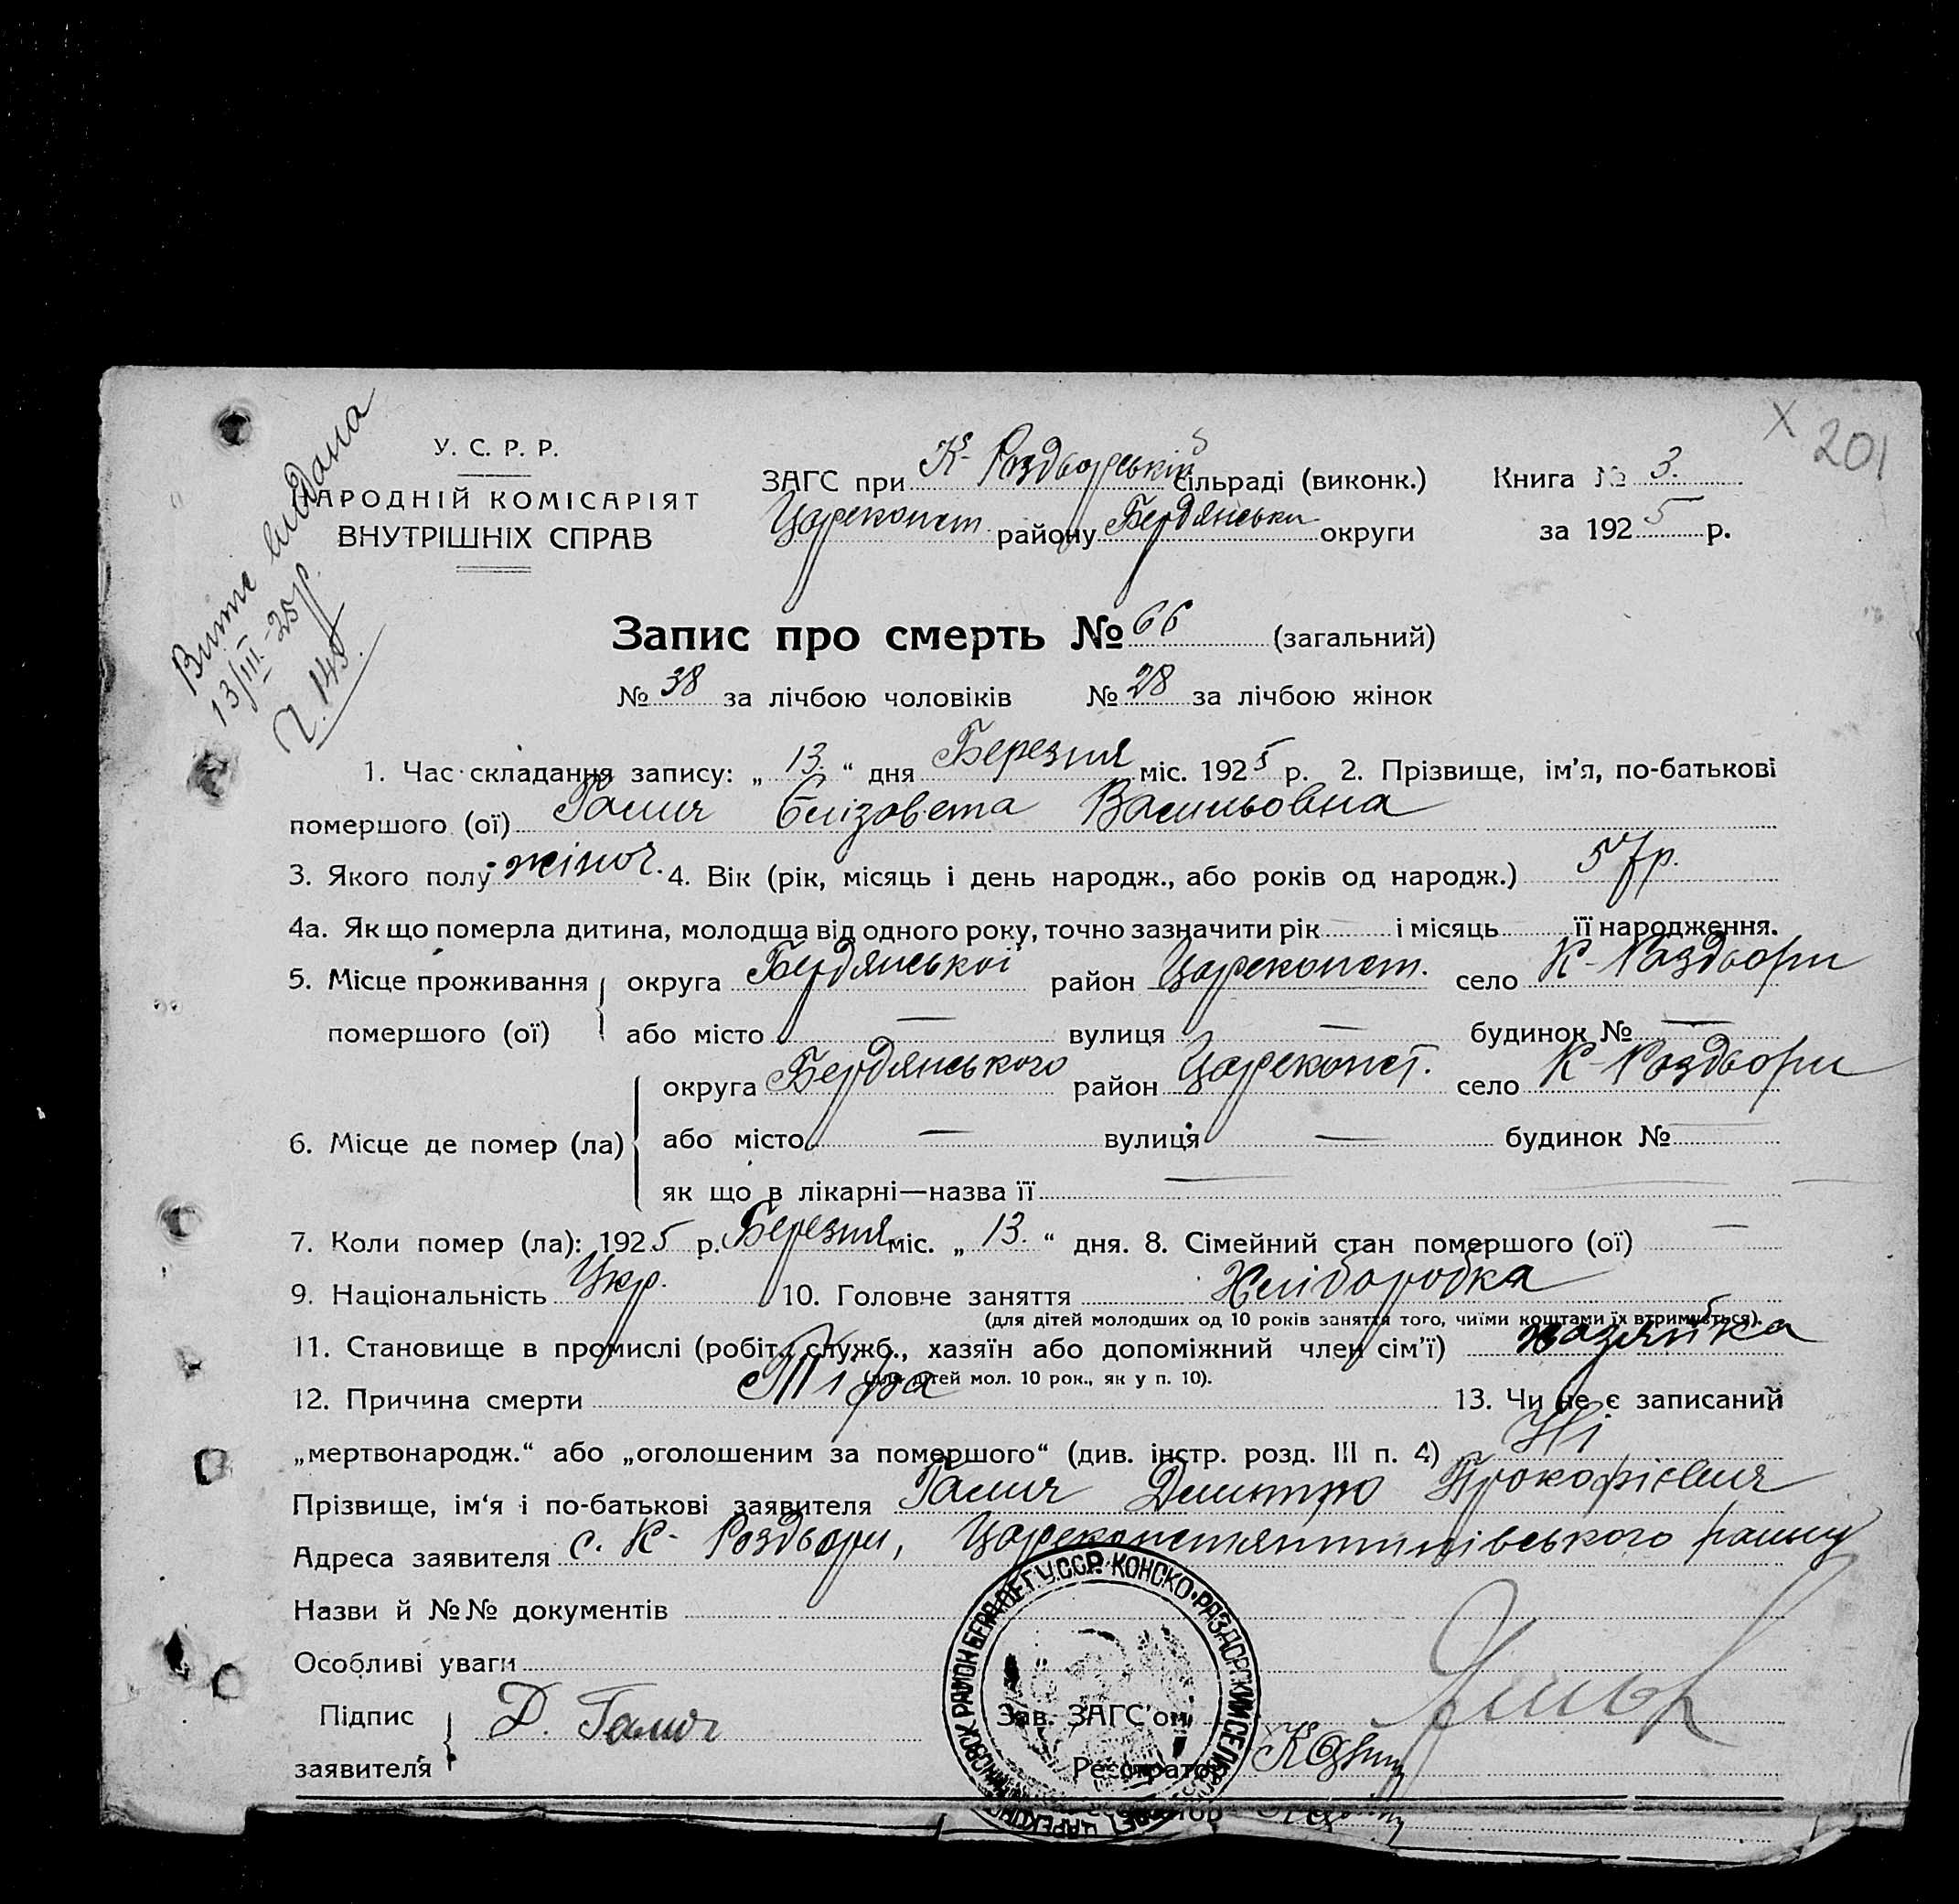 х 201
Витг видана
13/III-25 р.
У. С. Р. Р.
НАРОДНІЙ КОМІСАРІЯТ
ВНУТРІШНІХ СПРАВ
ЗАГС при К- Роздворській сільраді (виконк.)
Цареконст. району Бердянськи округи
Книга № 3.
за 1925 р.
Запис про смерть № 66 (загальний)
№ 38 за лічбою чоловіків № 28 за лічбою жінок
1. Час складання запису: „ 13. “ дня Березня міс. 1925 р. 2. Прізвище, ім'я, по-батькові
помершого (ої) Галич Єлізовета Васильовна
3. Якого полу жіноч. 4. Вік (рік, місяць і день народж., або років од народж.) 57 р.
4а. Як що померла дитина, молодща від одного року, точно зазначити рік і місяць її народження.
5. Місце проживання округа Бердянської район Цареконст. село К-Роздвори
помершого (ої) або місто — вулиця — будинок № —
округа Бердянського район Цареконст. село К-Роздвори
6. Місце де помер (ла) або місто — вулиця — будинок № —
як що в лікарні—назва її —
7. Коли помер (ла): 1925 р. Березня міс. „ 13. “ дня. 8. Сімейний стан помершого (ої) —
9. Національність Укр. 10. Головне заняття Хліборобка
(для дітей молодших од 10 років заняття того, чиїми коштами їх втримується).
11. Становище в промислі (робіт., служб., хазяїн або допоміжний член сім'ї) хазяйка
(для дітей мол. 10 рок., як у п. 10).
12. Причина смерти Тіфа 13. Чи не є записаний
„мертвонародж.“ або „оголошеним за помершого“ (див. інстр. розд. III п. 4) Ні
Прізвище, ім'я і по-батькові заявителя Галич Дмитро Прокофієвич
Адреса заявителя с. К- Роздвори, Цареконстянтинівського району
Назви й №№ документів
Особливі уваги
Підпис
заявителя Д. Галич
Зав. ЗАГС'ом
Реєстратор
У.С.С.Р. КОНСКО-РАЗДОРСКИЙ СЕЛЬСОВЕТ ЦАРЕКОНСТАНТИНОВСК РАЙОН